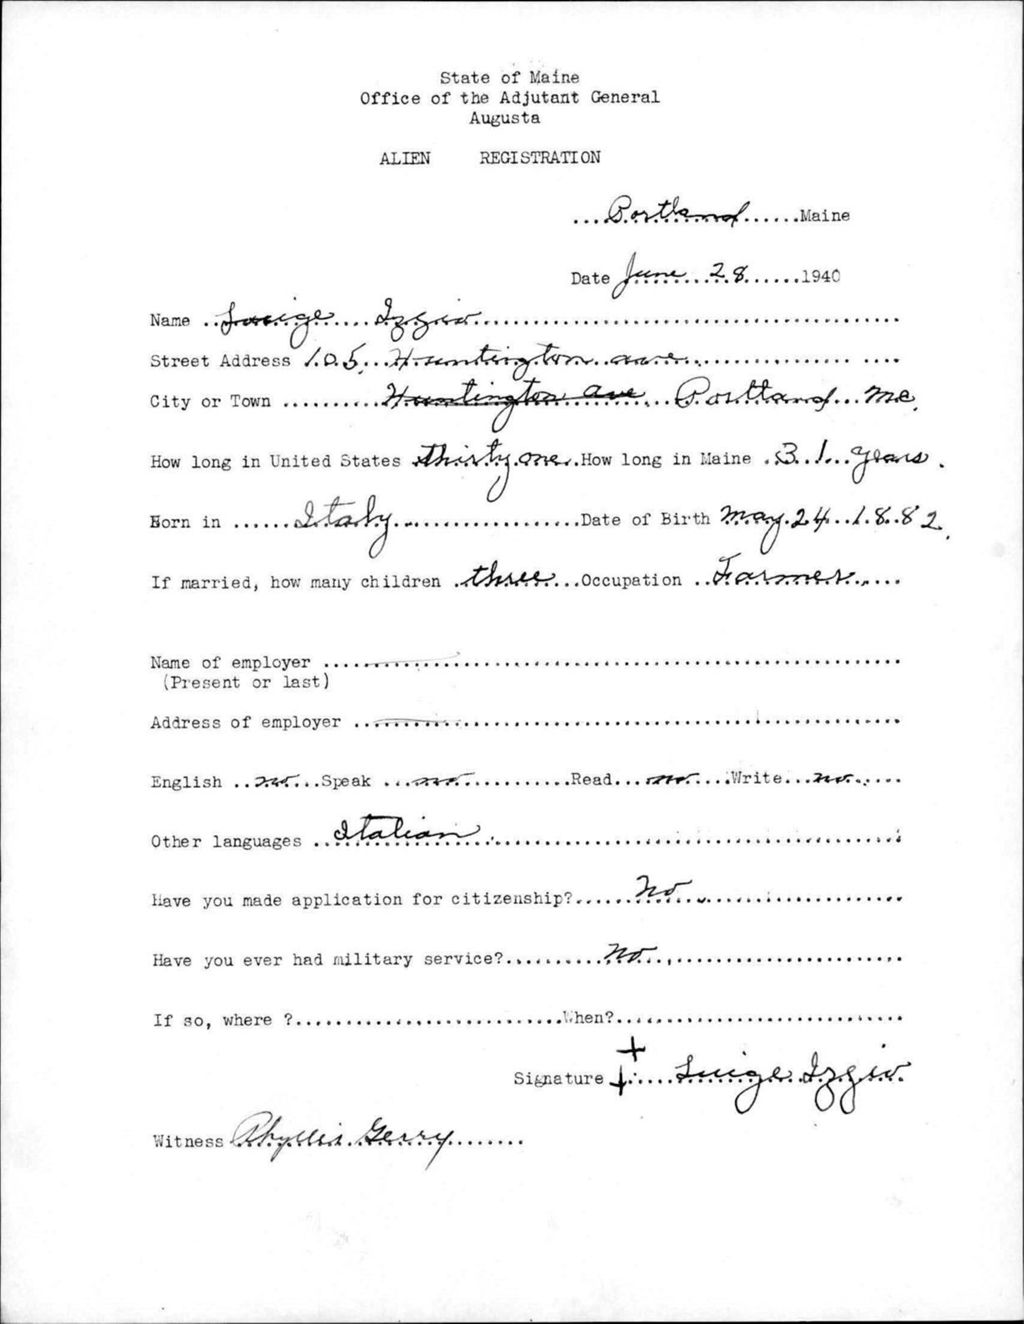 State of Maine
Office of the Adjutant General
Augusta
ALIEN REGISTRATION
...Portland......Maine
Date June 28......1940
Name ..Luige Izgio
Street Address 105 Huntington ave.
City or Town Huntington ave Portland Me.
How long in United States thirty one How long in Maine 31 years.
Born in Italy Date of Birth May 24 1882.
If married, how many children three Occupation Farmer
Name of employer
(Present or last)
Address of employer
English no Speak no Read no Write no
Other languages Italian
Have you made application for citizenship? No
Have you ever had military service? No
If so, where ? When?
Signature + + Luige Izgio
Witness Phyllis Gerry